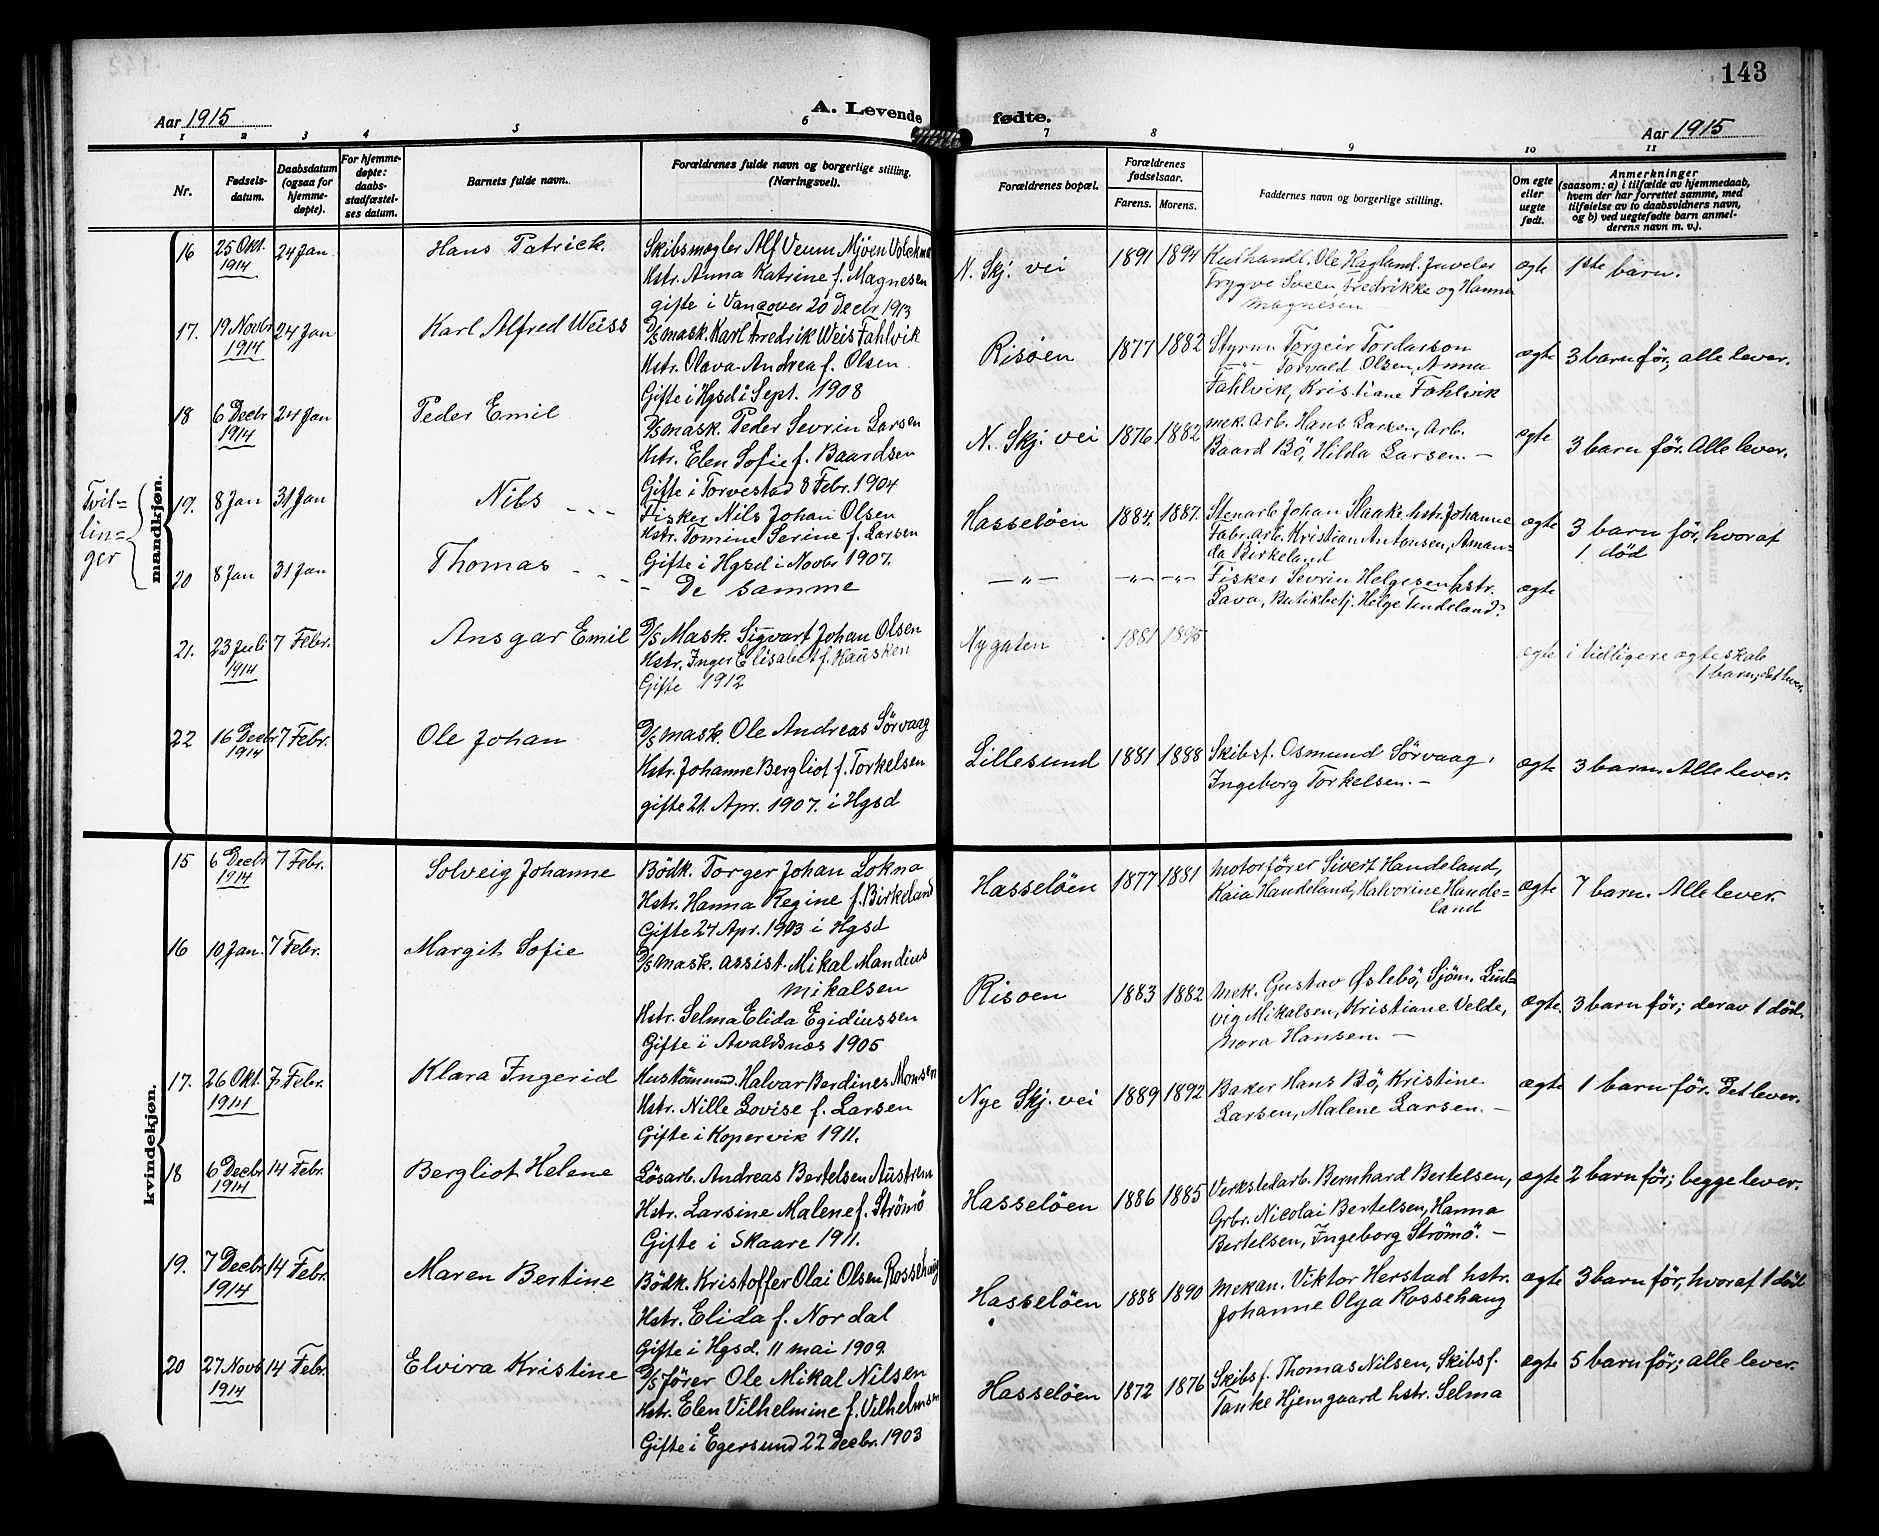 143
Aar 1915
A. Levende fødte.
Aar 1915
1 2 3 4 5 6 7 8 9 10 11
Nr.
Fødsels-
datum.
Daabsdatum
(ogsaa for
hjemme-
døpte).
For hjemme-
døpte:
daabs-
stadfæstel-
ses datum.
Barnets fulde navn.
Forældrenes fulde navn og borgerlige stilling.
(Næringsvei).
Forældrenes bopæl.
Forældrenes
fødselsaar.
Farens. Morens.
Faddernes navn og borgerlige stilling.
Om egte
eller
uegte
født.
Anmerkninger
(saasom: a) i tilfælde av hjemmedaab,
hvem der har forrettet samme, med
tilføielse av to daabsvidners navn,
og b) ved uegtefødte barn anmel-
derens navn m. v.).
mandkjøn.
16
25 Okt.
1914
24 Jan
Hans Patrick.
Skibsmægler Alf Veum Mjöen
Hstr. Anna Katrine f. Magnesen
gifte i Vancover 20 Decbr 1913
N. Skj. vei
1891 1894
Kulhandl. Ole Hagland. Juveler
Trygve Sveen, Fredrikke og Hanna
Magnesen
ægte
1ste barn.
17.
19 Novbr
1914
24 Jan
Karl Alfred Weiss
D/S mask. Karl Fredrik Weis Fahlvik
Hstr. Olava Andrea f. Olsen
Gifte i Hgsd i Sept. 1908
Risöen
1877 1882
Styrm. Torgeir Tordarson
—"— Torvald Olsen, Anna
Fahlvik, Kristiane Fahlvik
ægte
3 barn før, alle lever.
18
6 Decbr
1914
24 Jan
Peder Emil
D/S mask. Peder Sevrin Larsen
Hstr. Elen Sofie f. Baardsen
Gifte i Torvestad 8 Febr. 1904
N. Skj. vei
1876 1882
mek. Arb. Hans Larsen, Arb.
Baard Bö, Hilda Larsen. —
ægte
3 barn før. Alle lever.
Tvil=
lin=
ger
19.
8 Jan
31 Jan
Nils - - -
Fisker Nils Johan Olsen
Hstr. Tomine Serine f. Larsen
Gifte i Hgsd i Novbr 1907.
Hasselöen
1884. 1887.
Stenarb Johan Slaake hstr. Johanne
Fabr. arb. Kristian Antonsen, Aman-
da Birkeland
ægte
3 barn før, hvoraf
1. död
20
8 Jan
31 Jan
Thomas - - -
- De samme
—"—
—"— —"—
Fisker Sevrin Helgesen hstr.
Lava, Butikbetj. Helge Tendeland.
ægte
21.
23 Juli
1914
7 Febr.
Ansgar Emil
D/S Mask. Sigvart Johan Olsen
Hstr. Inger Elisabet f. Hausken
Gifte 1912
Nygaten
1881 1895
ægte
i tidligere ægteskab
1 barn, det lever.
22
16 Decbr
1914
7 Febr.
Ole Johan
D/S mask. Ole Andreas Sörvaag
Hstr. Johanne Bergliot f. Torkelsen
gifte 21. Apr. 1907. i Hgsd
Lillesund
1881 1888
Skibsf. Osmund Sörvaag.
Ingeborg Torkelsen. —
ægte
3 barn. Alle lever.
kvindekjøn.
15
6 Decbr
1914
7 Febr.
Solveig Johanne
Bödk. Torger Johan Lokna
Hstr. Hanna Regine f. Birkeland
Gifte 24 Apr. 1903 i Hgsd
Hasselöen
1877 1881
Motorförer Sivert Handeland,
Kaia Handeland, Halvorine Hande=
land
ægte
7 barn. Alle lever.
16
10 Jan.
7 Febr.
Margit Sofie
D/S mask. assist. Mikal Mandius
Mikalsen
Hstr. Selma Elida Egidiussen
Gifte i Avaldsnæs 1905
Risøen
1883 1882
Mek. Gustav Øslebö, Sjöm. Lud-
vig Mikalsen, Kristiane Velde,
Nora Hansen. —
ægte.
3 barn før; derav 1 död.
17.
26 Okt.
1914
7 Febr.
Klara Ingerid
Hustömmd. Halvar Berdines Monsen
Hstr. Nille Lovise f. Larsen
Gifte i Kopervik 1911.
Nye Skj. vei
1889 1892
Baker Hans Bö, Kristine
Larsen, Malene Larsen. —
ægte
1 barn før. Det lever.
18
6 Decbr
1914
14 Febr.
Bergliot Helene
Løsarb. Andreas Bertelsen Austrem
Hstr. Larsine Malene f. Strömö
Gifte i Skaare 1911.
Hasselöen
1886 1885
Verkstedarb. Bernhard Bertelsen,
Grbr. Nicolai Bertelsen, Hanna
Bertelsen, Ingeborg Strömö. —
ægte
2 barn før; begge lever.
19.
7 Decbr
1914
14 Febr.
Maren Bertine
Bödk. Kristoffer Olai Olsen Rossehaug
Hstr. Elida f. Nordal
Gifte i Hgsd. 11 mai 1909.
Hasselöen
1888 1890
Mekan. Viktor Herstad hstr.
Johanne Olga Rossehaug
ægte
3 barn før, hvoraf 1 död
20
27 Novb.
1914
14 Febr.
Elvira Kristine
D/S förer Ole Mikal Nilsen
Hstr. Elen Vilhelmine f. Vilhelmsen
Gifte i Egersund 22 Decbr. 1903
Hasselöen
1872 1876
Skibsf. Thomas Nilsen, Skibsf.
Tanke Hjemgaard hstr. Selma
ægte
5 barn før; alle lever.